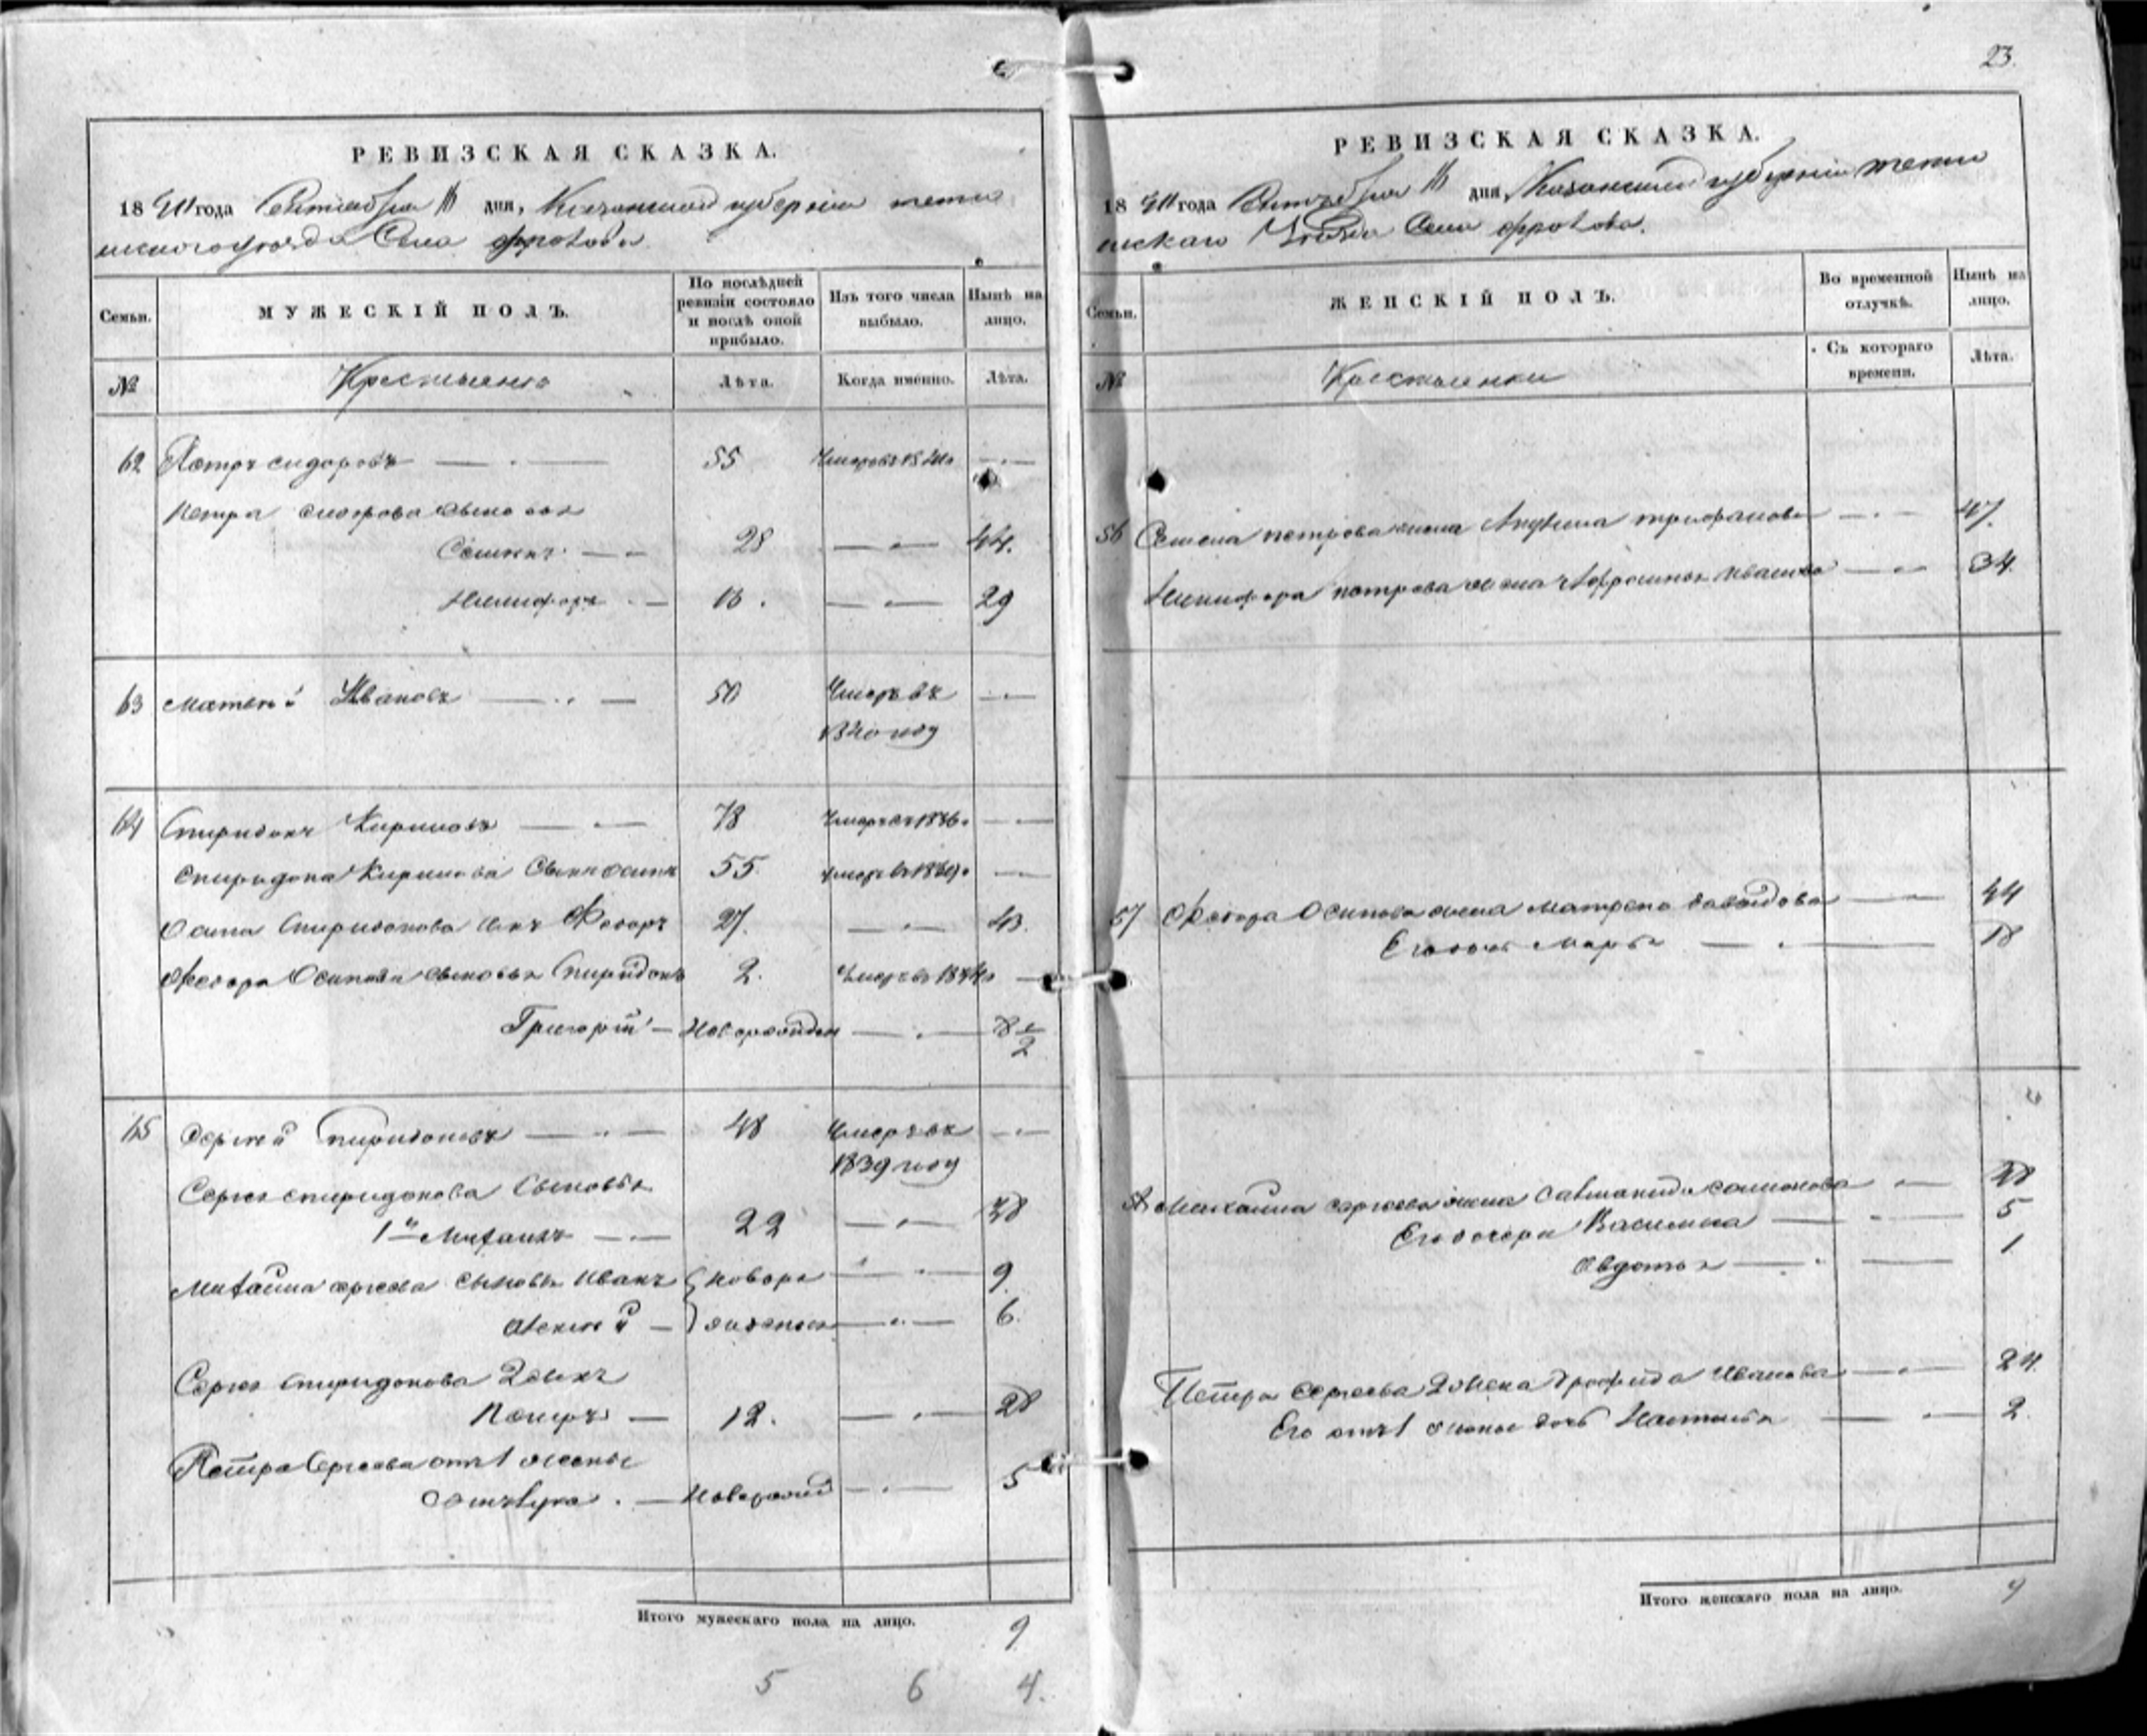 РЕВИЗСКАЯ СКАЗКА.
18 года Сентября дня, Казанской губернии
уезда Села фролова
Семьи. МУЖЕСКІЙ ПОЛЪ. По послѣдней ревизіи состояло и послѣ оной прибыло. Изъ того числа выбыло. Нынѣ на лицо.
№ Крестьяне Лѣта. Когда именно. Лѣта.
62 Петръ сидоровъ 55 Умеръ въ
Петра сидорова сыновья
Семенъ 28 44.
Никифоръ 29
63 Матвей Ивановъ 50 Умеръ въ
году
64 Спиридонъ Кириловъ 78 Умеръ въ 1836
Спиридона Кирилова Сынъ осипъ 55 умеръ въ
Осипа Спиридонова сынъ Федоръ 27. 43.
Федора Осипова сыновья Спиридонъ 2. Умеръ въ
Григорій Новорожден
65 Сергей Спиридоновъ 48 Умеръ въ
1839 году
Сергея спиридонова Сыновья
1й Михаилъ 22 38
Михайла сергеева сыновья Иванъ новоро 9.
Алексей жденные 6.
Сергея спиридонова 2 сынъ
Петръ 12. 28
Петра Сергеева отъ 1 жены
Новорожд 5
Итого мужескаго пола на лицо. 9
5 6 4.
23.
РЕВИЗСКАЯ СКАЗКА.
18 года Сентября дня, Казанской губернии
Уезда Села фролова.
Семьи. ЖЕНСКІЙ ПОЛЪ. Во временной отлучкѣ. Нынѣ на лицо.
№ Крестьянки Съ котораго времени. Лѣта.
56 Семена петрова жена трифанова 47.
Никифора петрова жена Афросинья Иванова 34.
57 Федора Осипова жена матрена давыдова 44
Его дочь Марья 18
Михайла сергеева жена семионова 38
Его дочери Василиса 5
Авдотья 1
Петра Сергеева 2 жена Иванова 24.
Его отъ 1 жены дочь Настасья 2.
Итого женскаго пола на лицо. 9